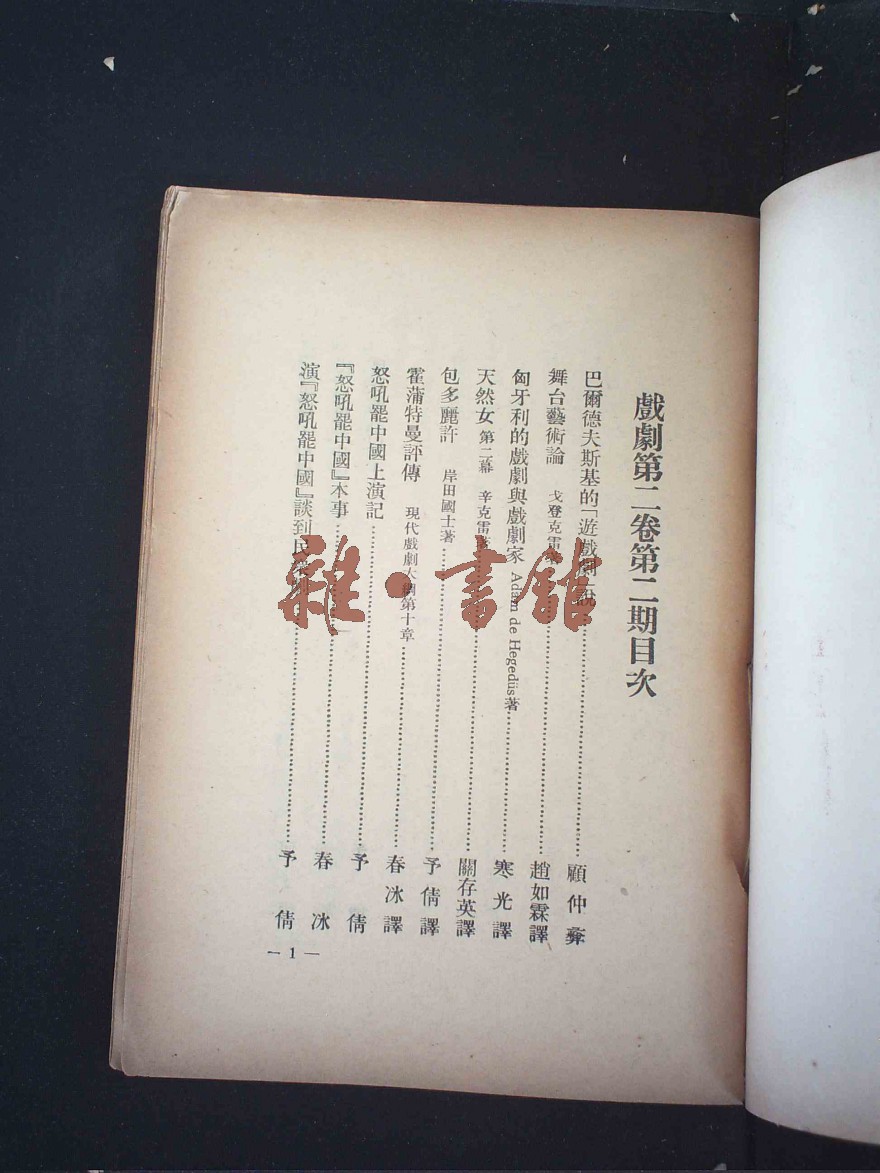 戲劇第二卷第二期目次
巴爾德夫斯基的「遊戲劇」說……顧仲彝
舞台藝術論 戈登克雷……趙如霖譯
匈牙利的戲劇與戲劇家 Adam de Hegedüs著……寒光譯
天然女 第二幕 辛克雷……關存英譯
包多麗許 岸田國士著……予倩譯
霍蒲特曼評傳 現代戲劇大綱第十章……春冰譯
怒吼罷中國上演記……予倩
『怒吼罷中國』本事……春冰
演『怒吼罷中國』談到民……予倩
—1—
雜·書館